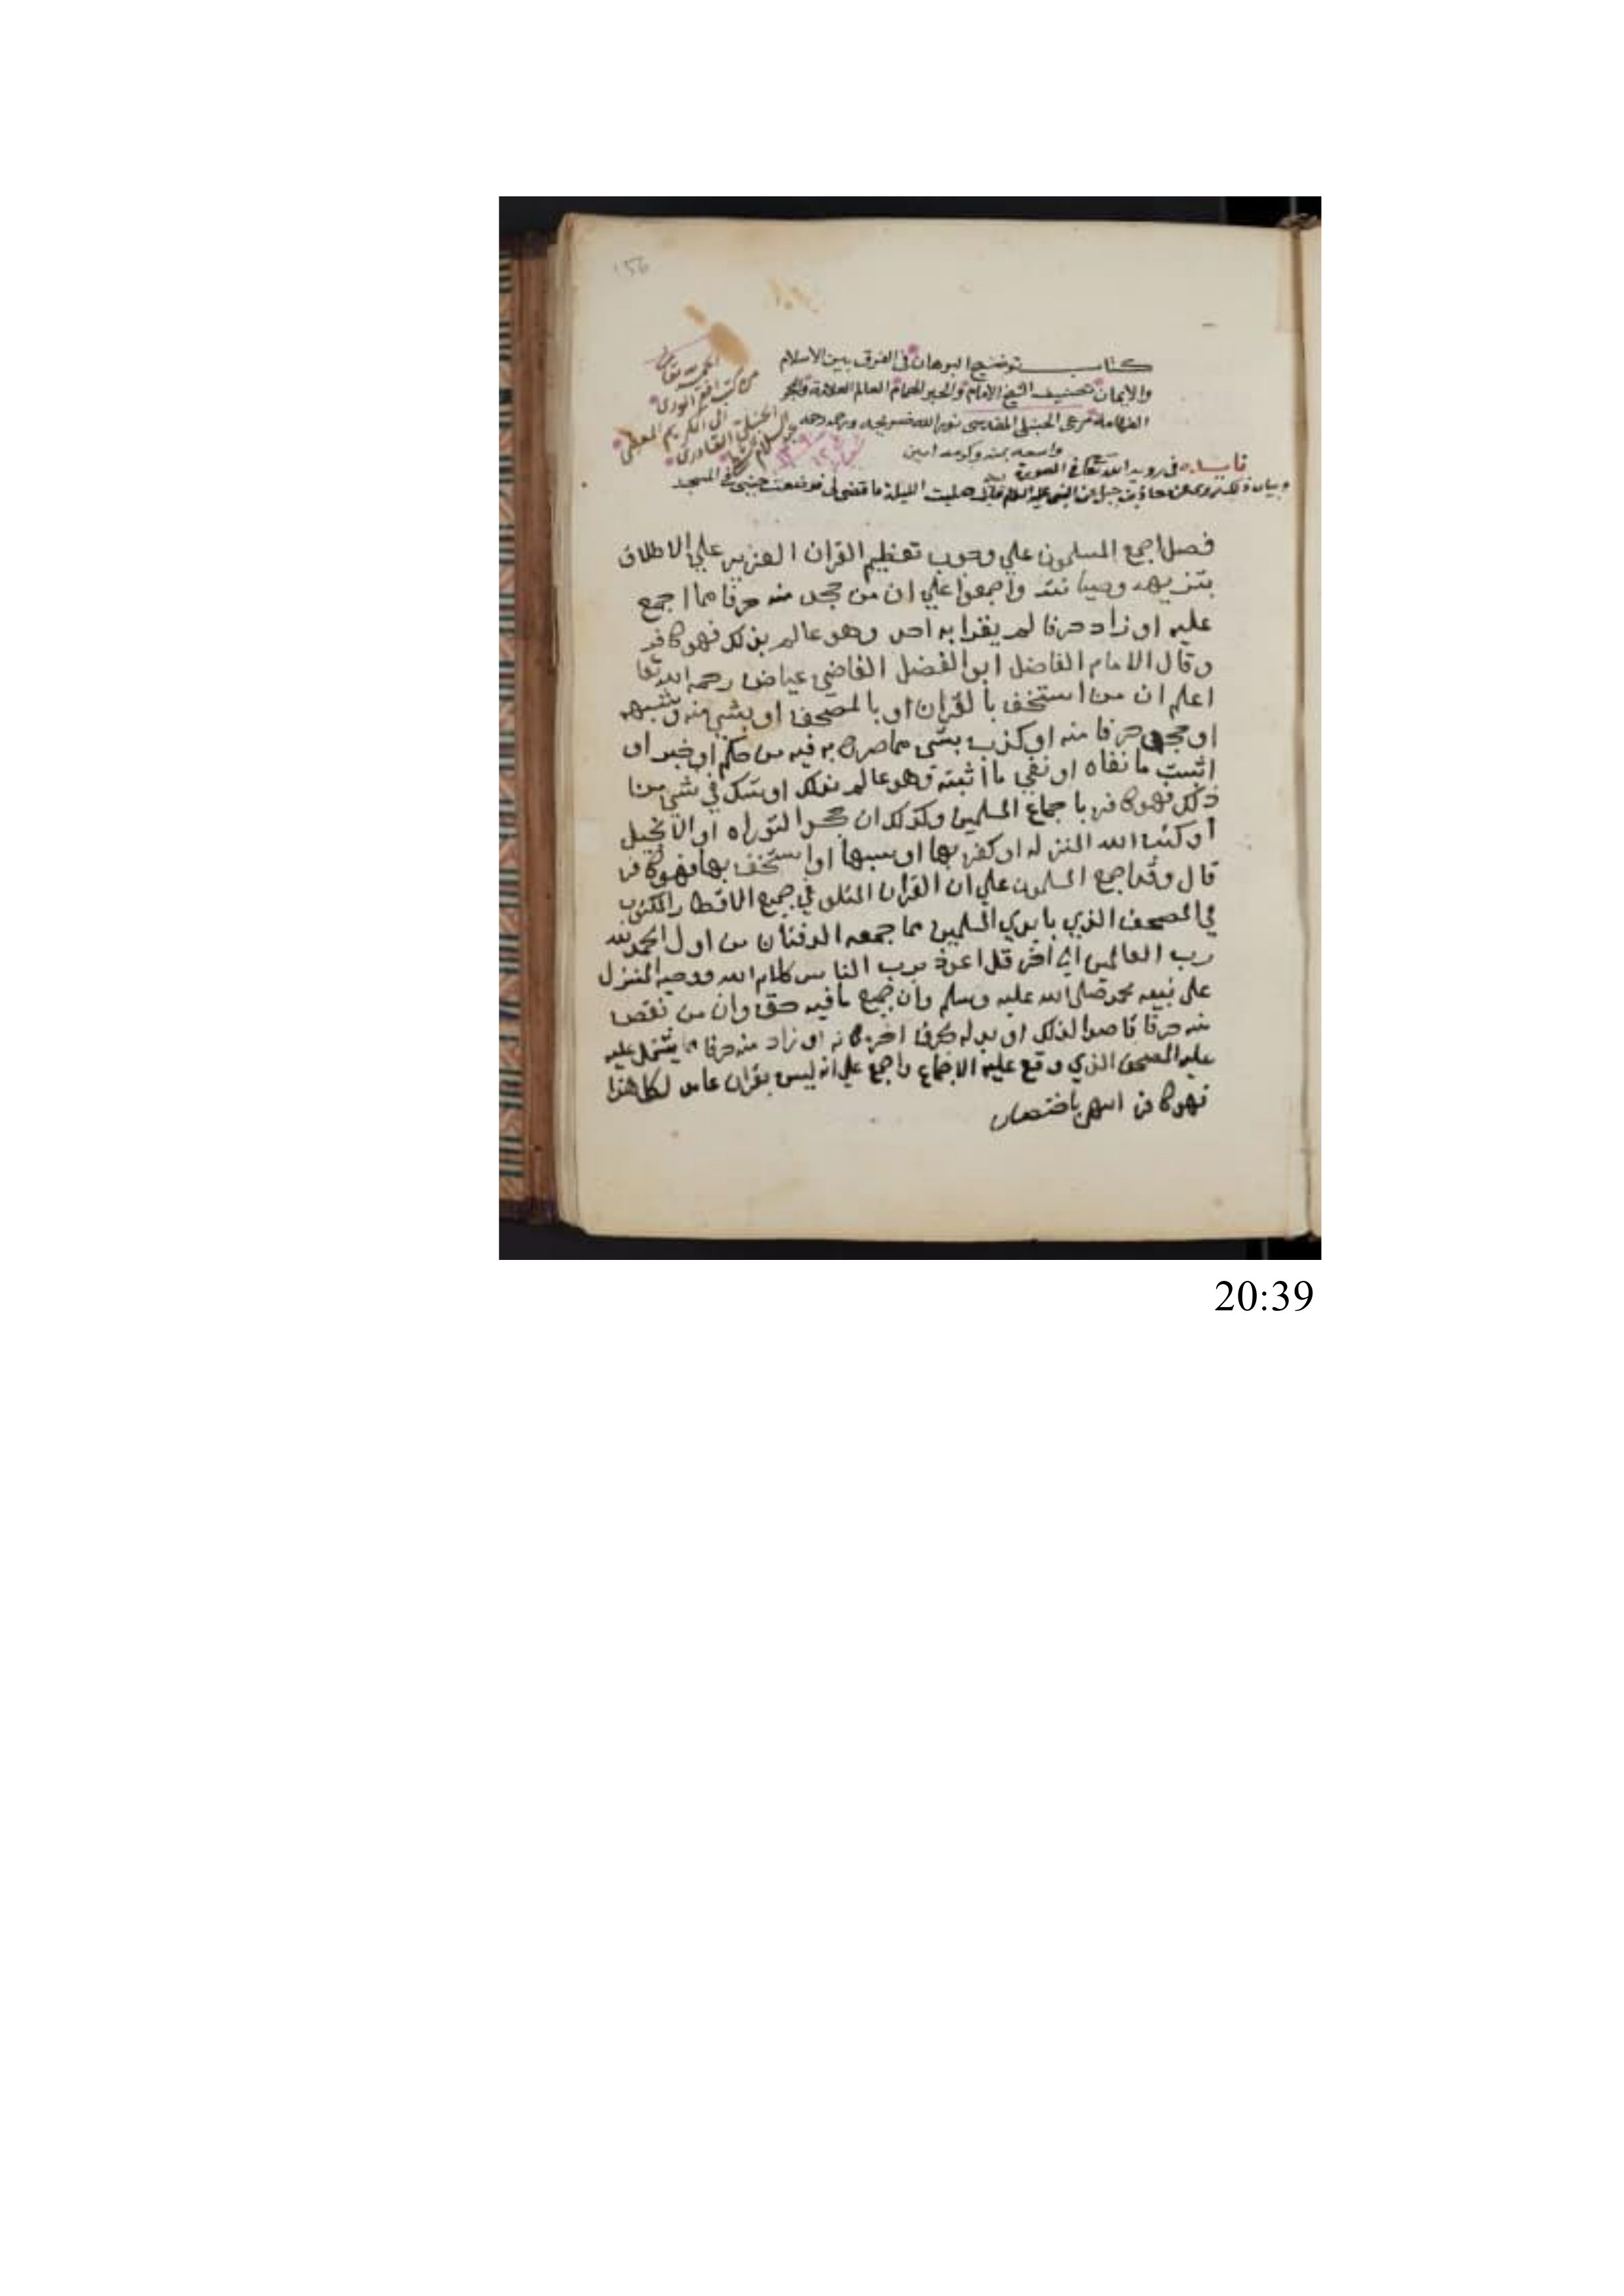 156
كتاب توضيح البرهان في الفرق بين الاسلام
والايمان تصنيف الشيخ الامام والحبر الهمام العالم العلامة والبحر
الفهامة مرعي الحنبلي المقدسي نور الله ضريحه ورحمه رحمة
واسعة بمنه وكرمه امين
الحمد لله تعالى
من كتب افقر الورى
الى الكريم المعطي
الحنبلي القادري
فايده في رويه الله تعالى في الصورة
وبيان ذلك روى عن معاذ بن جبل عن النبي عليه السلام قال صليت الليلة ما قضى لي فوضعت جنبي في المسجد
فصل اجمع المسلمون علي وجوب تعظيم القران العزيز علي الاطلاق
بتنزيهه وصيانته واجمعوا علي ان من جحد منه حرفا مما اجمع
عليه او زاد حرفا لم يقرا به احد وهو عالم بذلك فهو كافر
وقال الامام الفاضل ابو الفضل القاضي عياض رحمه الله تعا
اعلم ان من استخف بالقران او بالمصحف او بشي منه او سبهه
او جحد حرفا منه او كذب بشي مما صرح به فيه من حكم او خبر او
اثبت ما نفاه او نفي ما اثبته وهو عالم بذلك او شك في شي من
ذلك فهو كافر با جماع المسلمين وكذلك ان جحد التوراه او الانجيل
او كتب الله المنزله او كفر بها او سبها او استخف بها فهو كافر
قال وقد اجمع المسلمون علي ان القران المتلو في جميع الاقطار المكتوب
في المصحف الذي بايدي المسلمين مما جمعه الدفتان من اول الحمد لله
رب العالمين الي اخر قل اعوذ برب الناس كلام الله ووحيه المنزل
على نبيه محمد صلى الله عليه وسلم وان جميع ما فيه حق وان من نقص
منه حرفا قاصدا لذلك او بدله بحرف اخر مكانه او زاد منه حرفا مما يشتمل عليه
عليه المصحف الذي وقع عليه الاجماع واجمع علي انه ليس بقران عامد لكل هذا
فهو كافر انتهى باختصار
20:39